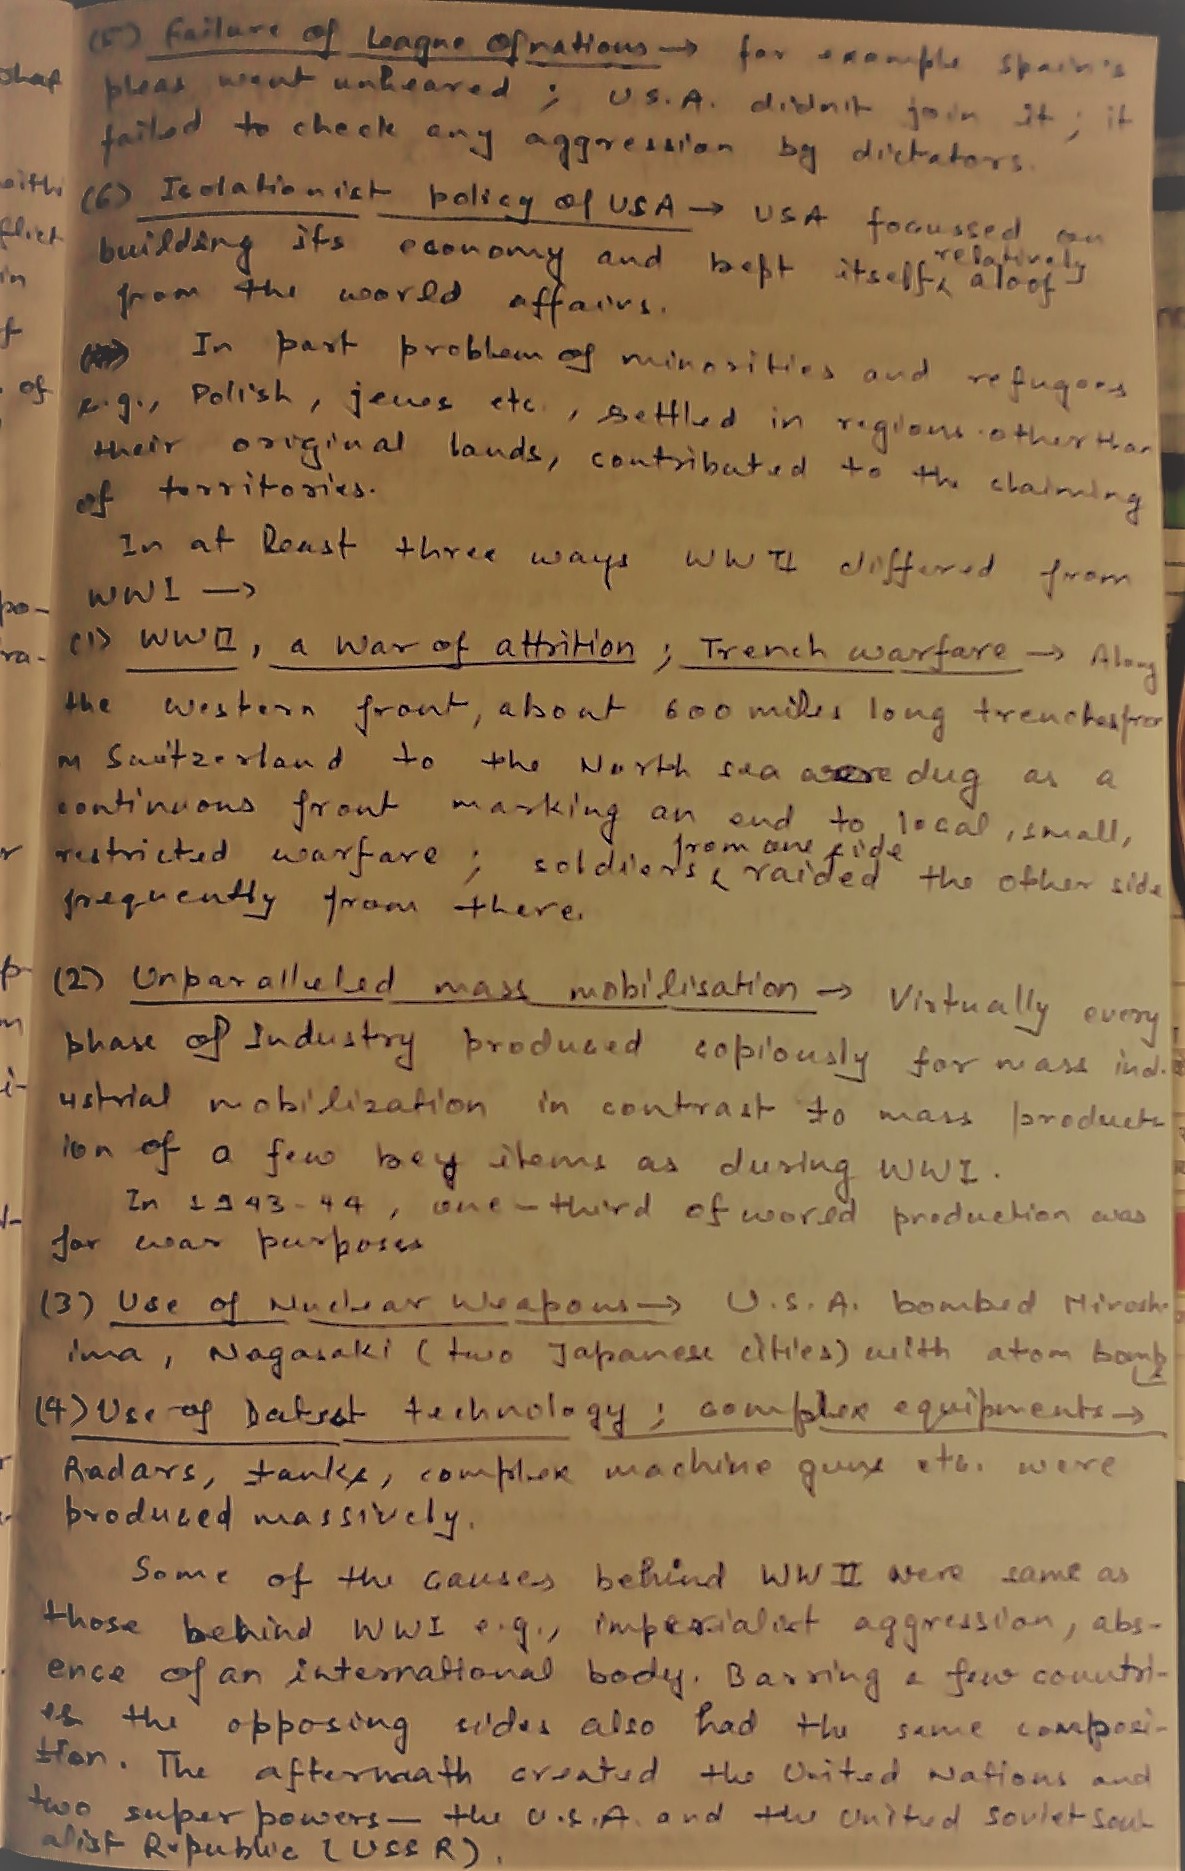 (5) Failure of League Of nations → for example Spain's
pleas went unheared ; U.S.A. didnit join it ; it
failed to check any aggression by dictators.
(6) Isolationist policy of USA → USA focussed on
building its economy and kept itself relatively aloof
from the world affairs.
In part problem of minorities and refugees
e.g., Polish, jews etc., settled in regions other than
their original lands, contributed to the claiming
of territories.
In at least three ways WW II differed from
WWI →
(1) WWII, a War of attrition ; Trench warfare → Along
the western front, about 600 miles long trenches fro
m Switzerland to the North sea were dug as a
continuous front marking an end to local, small,
restricted warfare ; soldiers from one side raided the other side
frequently from there.
(2) Unparalleled mass mobilisation → Virtually every
phase of Industry produced copiously for mass ind-
ustrial mobilization in contrast to mass product-
ion of a few key items as during WWI.
In 1943-44, one-third of world production was
for war purposes
(3) Use of Nuclear Weapons → U.S.A. bombed Hirosh-
ima, Nagasaki (two Japanese cities) with atom bomb
(4) Use of Latest technology ; complex equipments →
Radars, tanks, complex machine guns etc. were
produced massively.
Some of the causes behind WW II were same as
those behind WWI e.g., imperialist aggression, abs-
ence of an international body. Barring a few countri-
es the opposing sides also had the same composi-
tion. The aftermath created the United Nations and
two super powers— the U.S.A. and the United Soviet Soci
alist Republic (USSR).